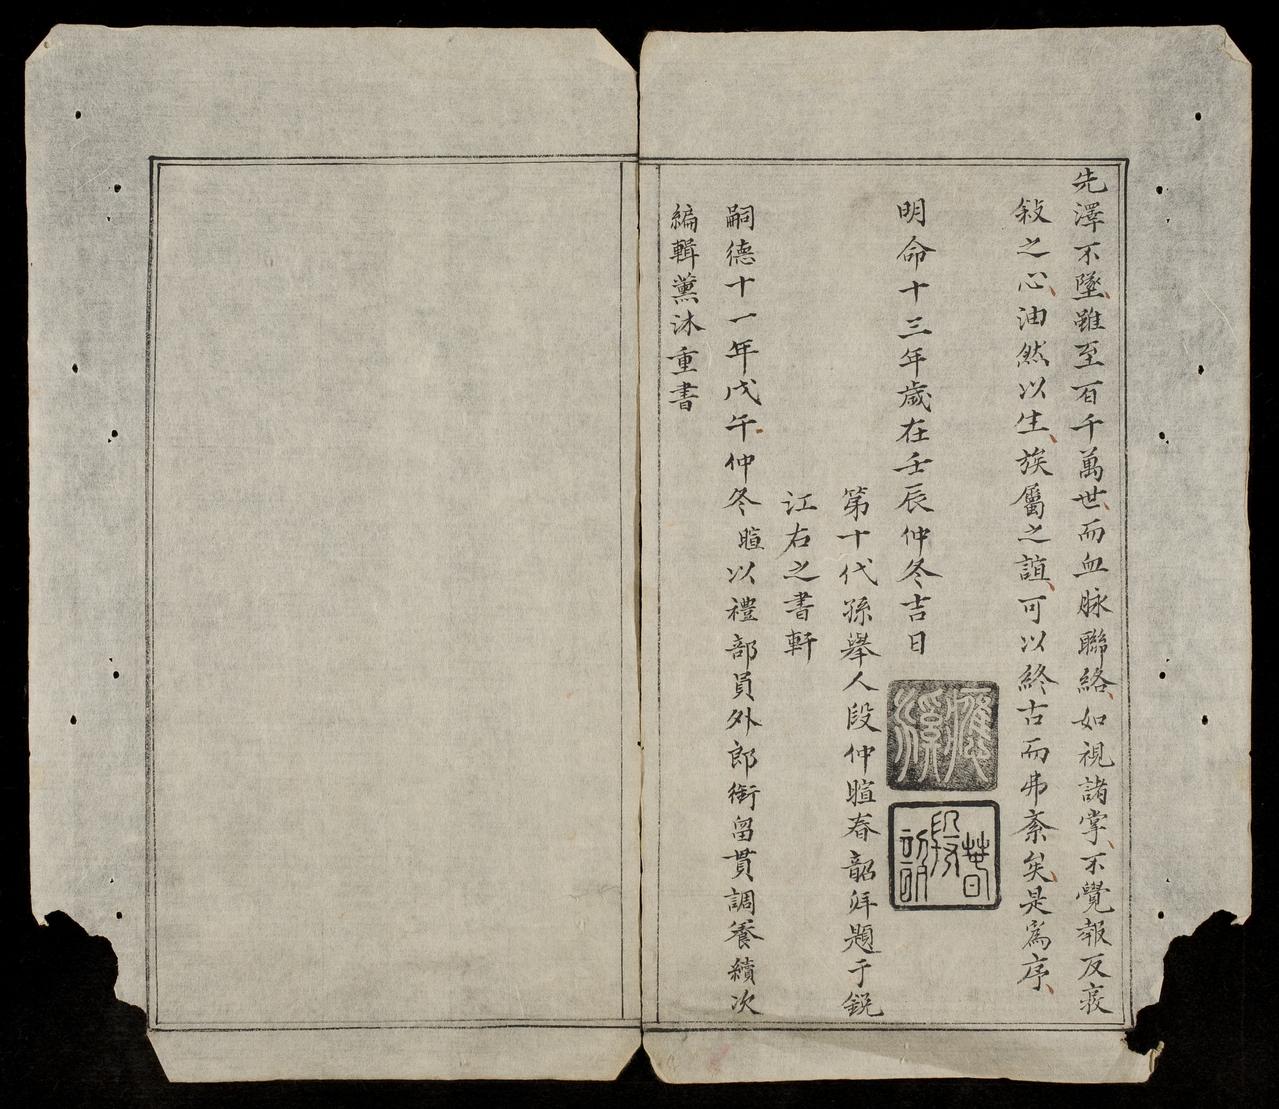 先澤不墜雖至百千萬世而血脉聯絡如視諸掌不覺報反
敍之心油然以生族屬之誼可以終古而弗紊矣是爲序
明命十三年歲在壬辰仲冬吉日
第十代孫舉人段仲暄春韶拜題于銳
江右之書軒
嗣德十一年戊午仲冬暄以禮部員外郎銜留貫調養續次
編輯薰沐重書